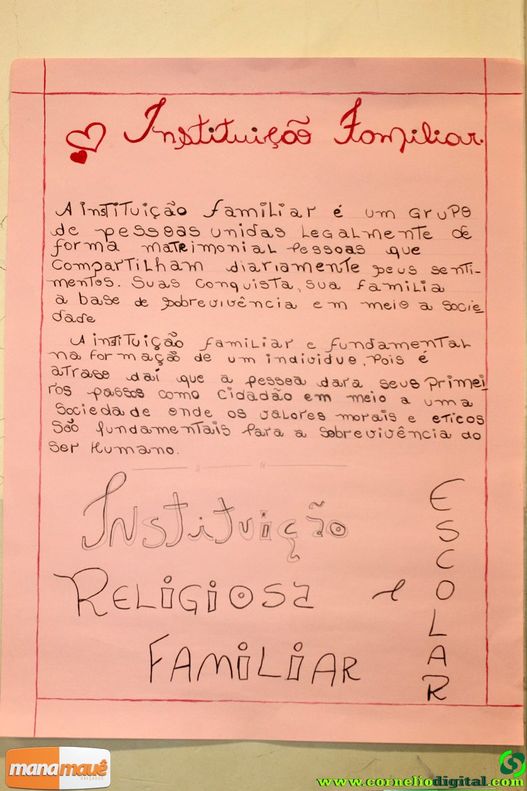 Instituição Familiar
A instituição familiar é um grupo
de pessoas unidas legalmente de
forma matrimonial pessoas que
compartilham diariamente seus senti-
mentos. Suas conquista, sua familia
a base de sobrevivência em meio a socie
dade
A instituição familiar e fundamental
na formação de um individuo, pois é
atrase daí que a pessoa dara seus primei
ros passos como cidadão em meio a uma
sociedade onde os valores morais e eticos
são fundamentais para a sobrevivência do
ser humano.
Instituição
Religiosa e
Familiar
ESCOLAR
manamauê
calçados
www.corneliodigital.com